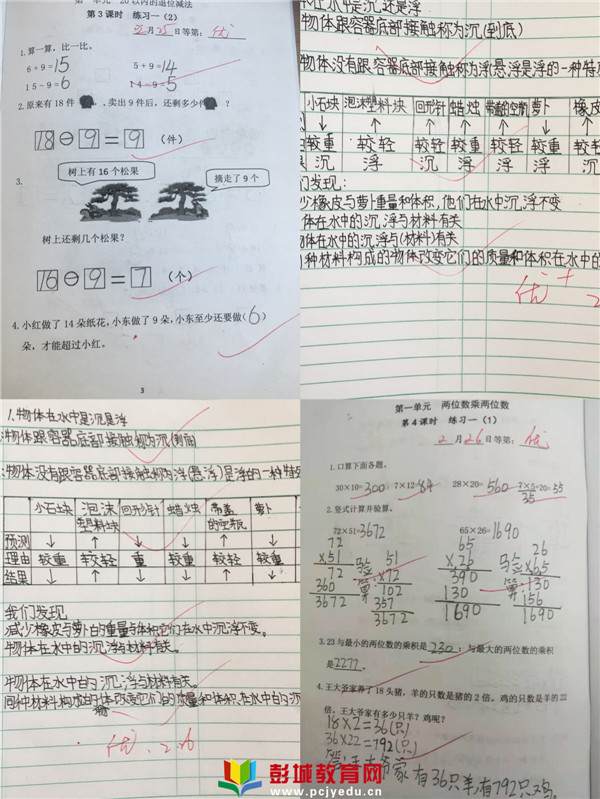 第一单元 20以内的退位减法
第3课时 练习一（2）
2月25日等第：优
1.算一算，比一比。
6+9=15 5+9=14
15-9=6 14-9=5
2.原来有18件，卖出9件后，还剩多少件？
18⊖9=9（件）
3.
树上有16个松果
摘走了9个
树上还剩几个松果？
16⊖9=7（个）
4.小红做了14朵纸花，小东做了9朵，小东至少还要做（6）
朵，才能超过小红。
3
在水中是沉还是浮
物体跟容器底部接触称为沉(到底)
物体没有跟容器底部接触称为浮(悬浮是浮的一种特
小石块 泡沫塑料块 回形针 蜡烛 带盖的空瓶 萝卜 橡皮
↓ ↑ ↑ ↑ ↑ ↓ ↑
较重 较轻 较轻 较轻 较轻 较重 较
沉 浮 沉 浮 浮 浮 沉
们发现：
少橡皮与萝卜重量和体积，他们在水中沉浮不变
体在水中的沉浮与材料有关
物体在水中的沉、浮与(材料)有关
种材料构成的物体改变它们的质量和体积在水中的
优+
1.物体在水中是沉是浮
物体跟容器底部接触称为沉(到底)
物体没有跟容器底部接触称为浮(悬浮)是浮的一种特
小石块 泡沫塑料块 回形针 蜡烛 带盖的空瓶 萝卜
预测 ↓ ↑ ↓ ↓ ↑ ↓
理由 较重 较轻 重 较重 较轻 较重
结果 ↓ ↑ ↓ ↑ ↑ ↓
我们发现
减少橡皮与萝卜的重量与体积它们在水中沉浮不变。
物体在水中的沉浮与材料有关。
物体在水中的沉、浮与材料有关。
同种材料构成的物体改变它们的质量和体积在水中的沉
优 2.6
第一单元 两位数乘两位数
第4课时 练习一（1）
2月26日等第：优
1.口算下面各题。
30×10=300 7×12=84 28×20=560
2.竖式计算并验算。
72×51=3672 65×26=1690
72 51 65 26
×51 验 ×72 ×26 验 ×65
72 算 102 390 算 130
360 357 130 156
3672 3672 1690 1690
3.23与最小的两位数的乘积是230；与最大的两位数的乘积
是2277。
4.王大爷家养了18头猪，羊的只数是猪的2倍，鸡的只数是羊的22
倍。王大爷家有多少只羊？鸡呢？
18×2=36(只)
36×22=792(只)
答：王大爷家有36只羊，有792只鸡。
彭城教育网
www.pcjyedu.cn